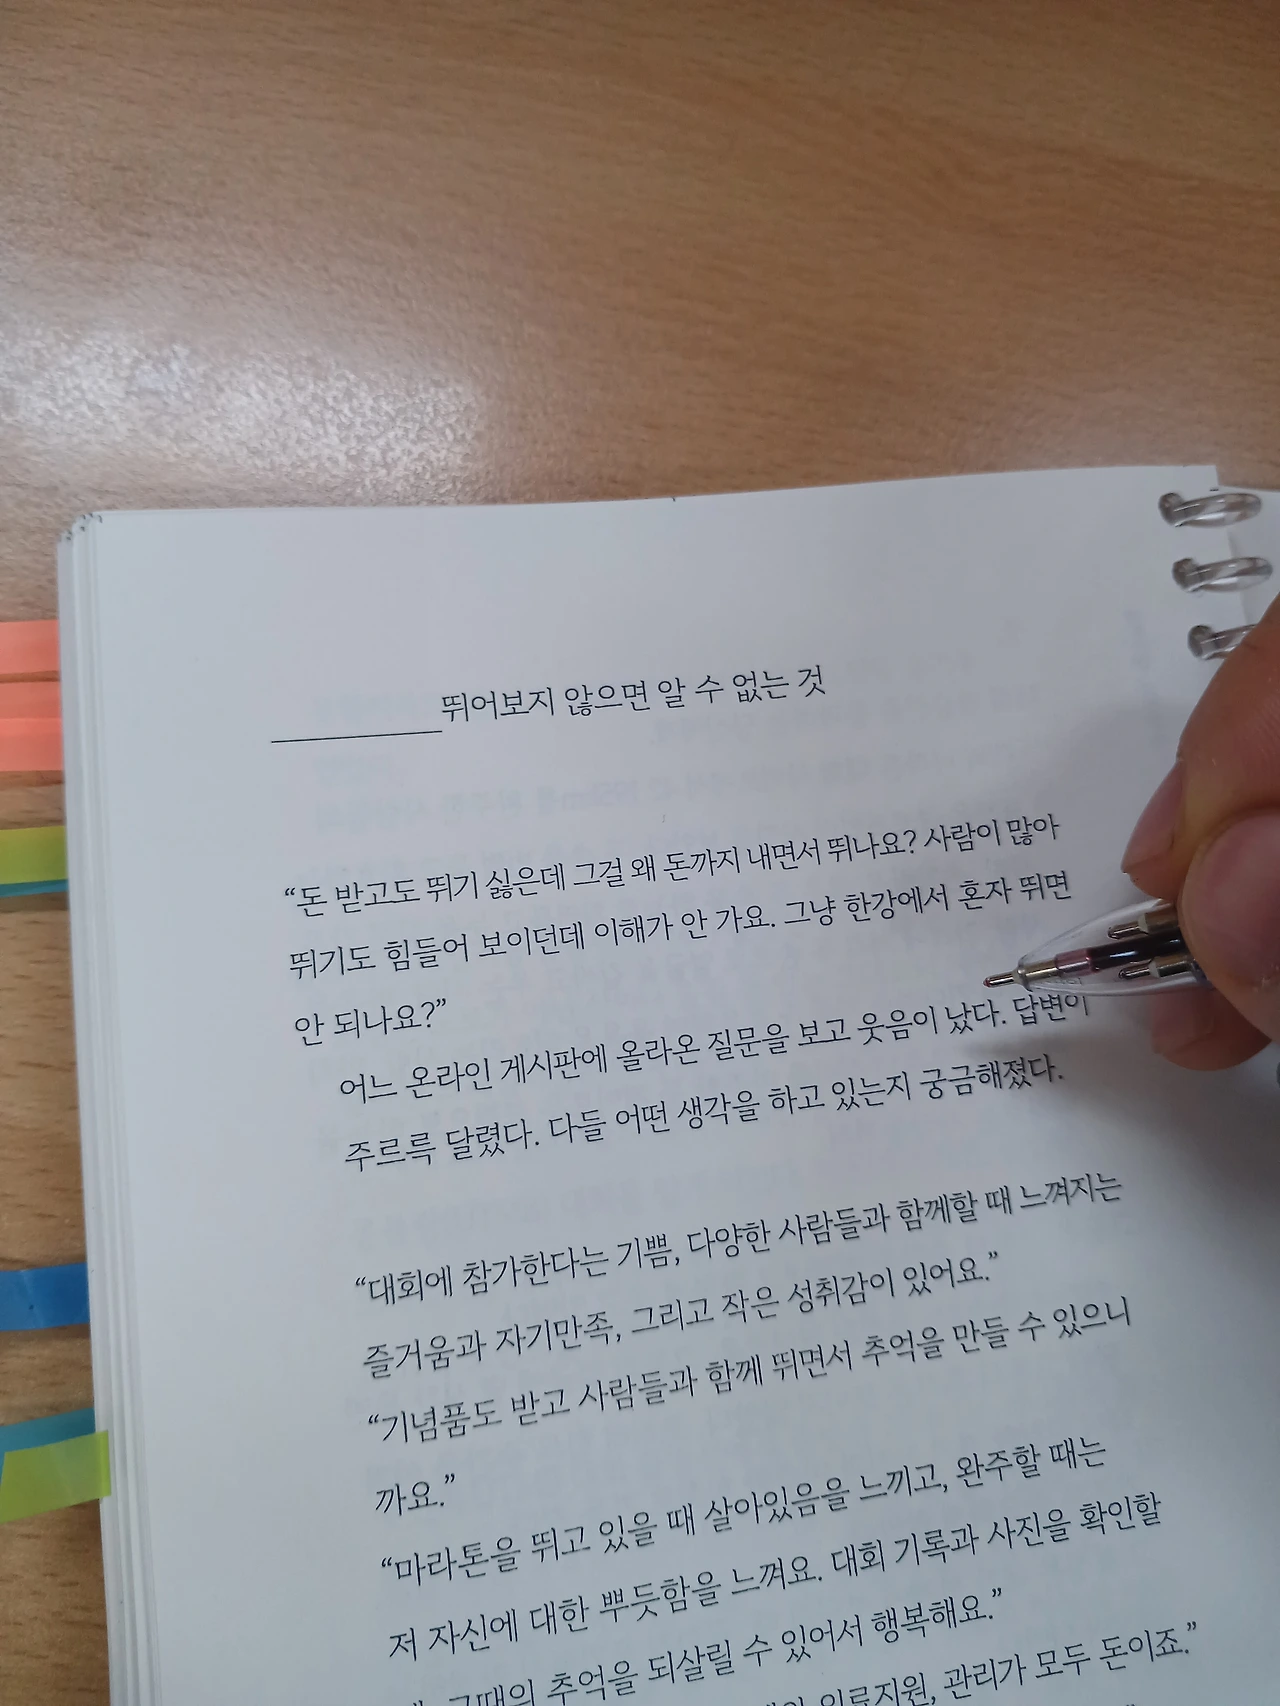 뛰어보지 않으면 알 수 없는 것
“돈 받고도 뛰기 싫은데 그걸 왜 돈까지 내면서 뛰나요? 사람이 많아
뛰기도 힘들어 보이던데 이해가 안 가요. 그냥 한강에서 혼자 뛰면
안 되나요?”
어느 온라인 게시판에 올라온 질문을 보고 웃음이 났다. 답변이
주르륵 달렸다. 다들 어떤 생각을 하고 있는지 궁금해졌다.
“대회에 참가한다는 기쁨, 다양한 사람들과 함께할 때 느껴지는
즐거움과 자기만족, 그리고 작은 성취감이 있어요.”
“기념품도 받고 사람들과 함께 뛰면서 추억을 만들 수 있으니
까요.”
“마라톤을 뛰고 있을 때 살아있음을 느끼고, 완주할 때는
저 자신에 대한 뿌듯함을 느껴요. 대회 기록과 사진을 확인할
그때의 추억을 되살릴 수 있어서 행복해요.”
의료지원, 관리가 모두 돈이죠.”